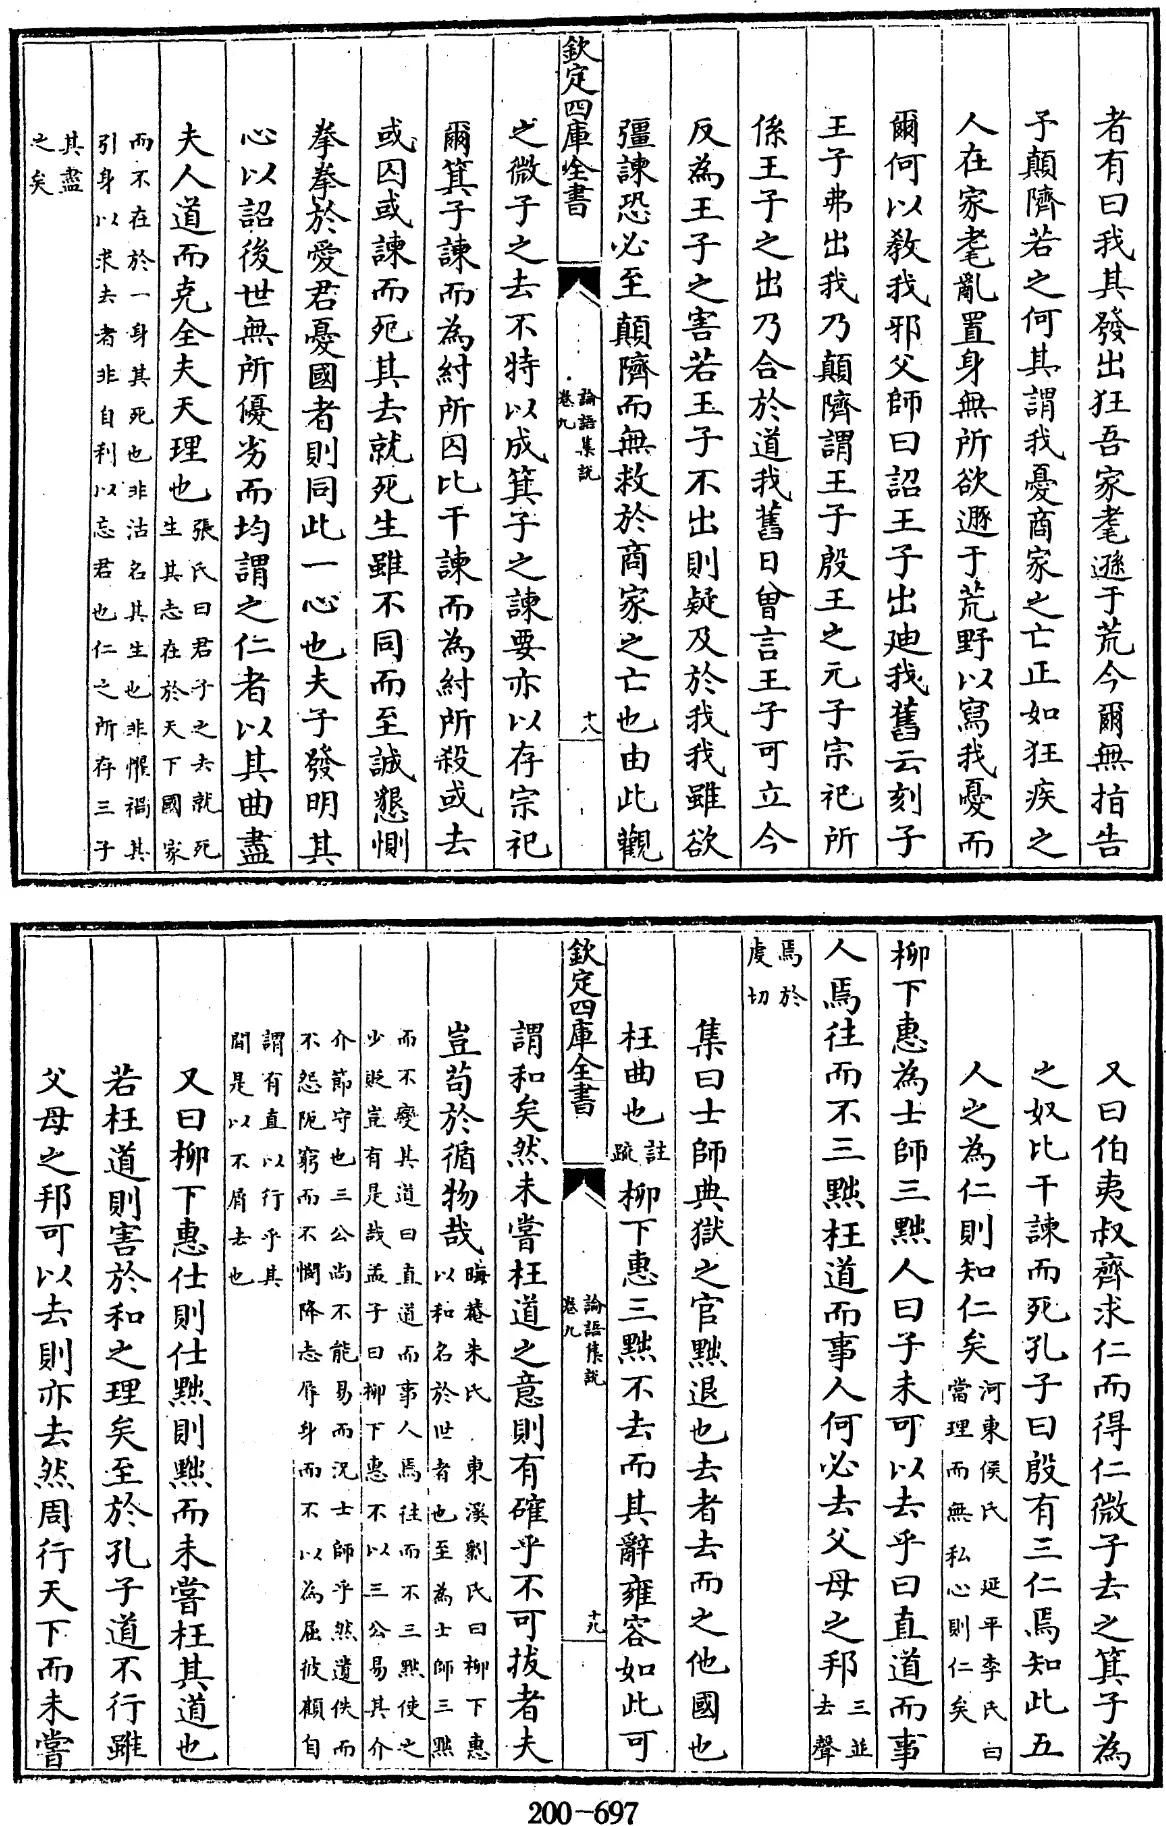 者有曰我其發出狂吾家耄遜于荒今爾無指告
予顛隮若之何其謂我憂商家之亡正如狂疾之
人在家耄亂置身無所欲遯于荒野以寫我憂而
爾何以敎我邪父師曰詔王子出廸我舊云刻子
王子弗出我乃顛隮謂王子殷王之元子宗祀所
係王子之出乃合於道我舊日曾言王子可立今
反為王子之害若王子不出則疑及於我我雖欲
彊諫恐必至顛隮而無救於商家之亡也由此觀
欽定四庫全書
論語集說
卷九
十八
之微子之去不特以成箕子之諫要亦以存宗祀
爾箕子諫而為紂所囚比干諫而為紂所殺或去
或囚或諫而死其去就死生雖不同而至誠懇惻
拳拳於愛君憂國者則同此一心也夫子發明其
心以詔後世無所優劣而均謂之仁者以其曲盡
夫人道而克全夫天理也
張氏曰君子之去就死
生其志在於天下國家
而不在於一身其死也非沽名其生也非懼禍其
引身以求去者非自利以忘君也仁之所存三子
其盡
之矣
又曰伯夷叔齊求仁而得仁微子去之箕子為
之奴比干諫而死孔子曰殷有三仁焉知此五
人之為仁則知仁矣
河東侯氏 延平李氏曰
當理而無私心則仁矣
柳下惠為士師三黜人曰子未可以去乎曰直道而事
人焉往而不三黜枉道而事人何必去父母之邦
三並
去聲
焉於
虔切
集曰士師典獄之官黜退也去者去而之他國也
枉曲也
註
疏
柳下惠三黜不去而其辭雍容如此可
欽定四庫全書
論語集說
卷九
十九
謂和矣然未嘗枉道之意則有確乎不可拔者夫
豈苟於循物哉
晦菴朱氏 東溪劉氏曰柳下惠
以和名於世者也至為士師三黜
而不變其道曰直道而事人焉往而不三黜使之
少貶豈有是哉孟子曰柳下惠不以三公易其介
介節守也三公尚不能易而況士師乎然遺佚而
不怨阨窮而不憫降志辱身而不以為屈彼顧自
謂有直以行乎其
間是以不屑去也
又曰柳下惠仕則仕黜則黜而未嘗枉其道也
若枉道則害於和之理矣至於孔子道不行雖
父母之邦可以去則亦去然周行天下而未嘗
200-697